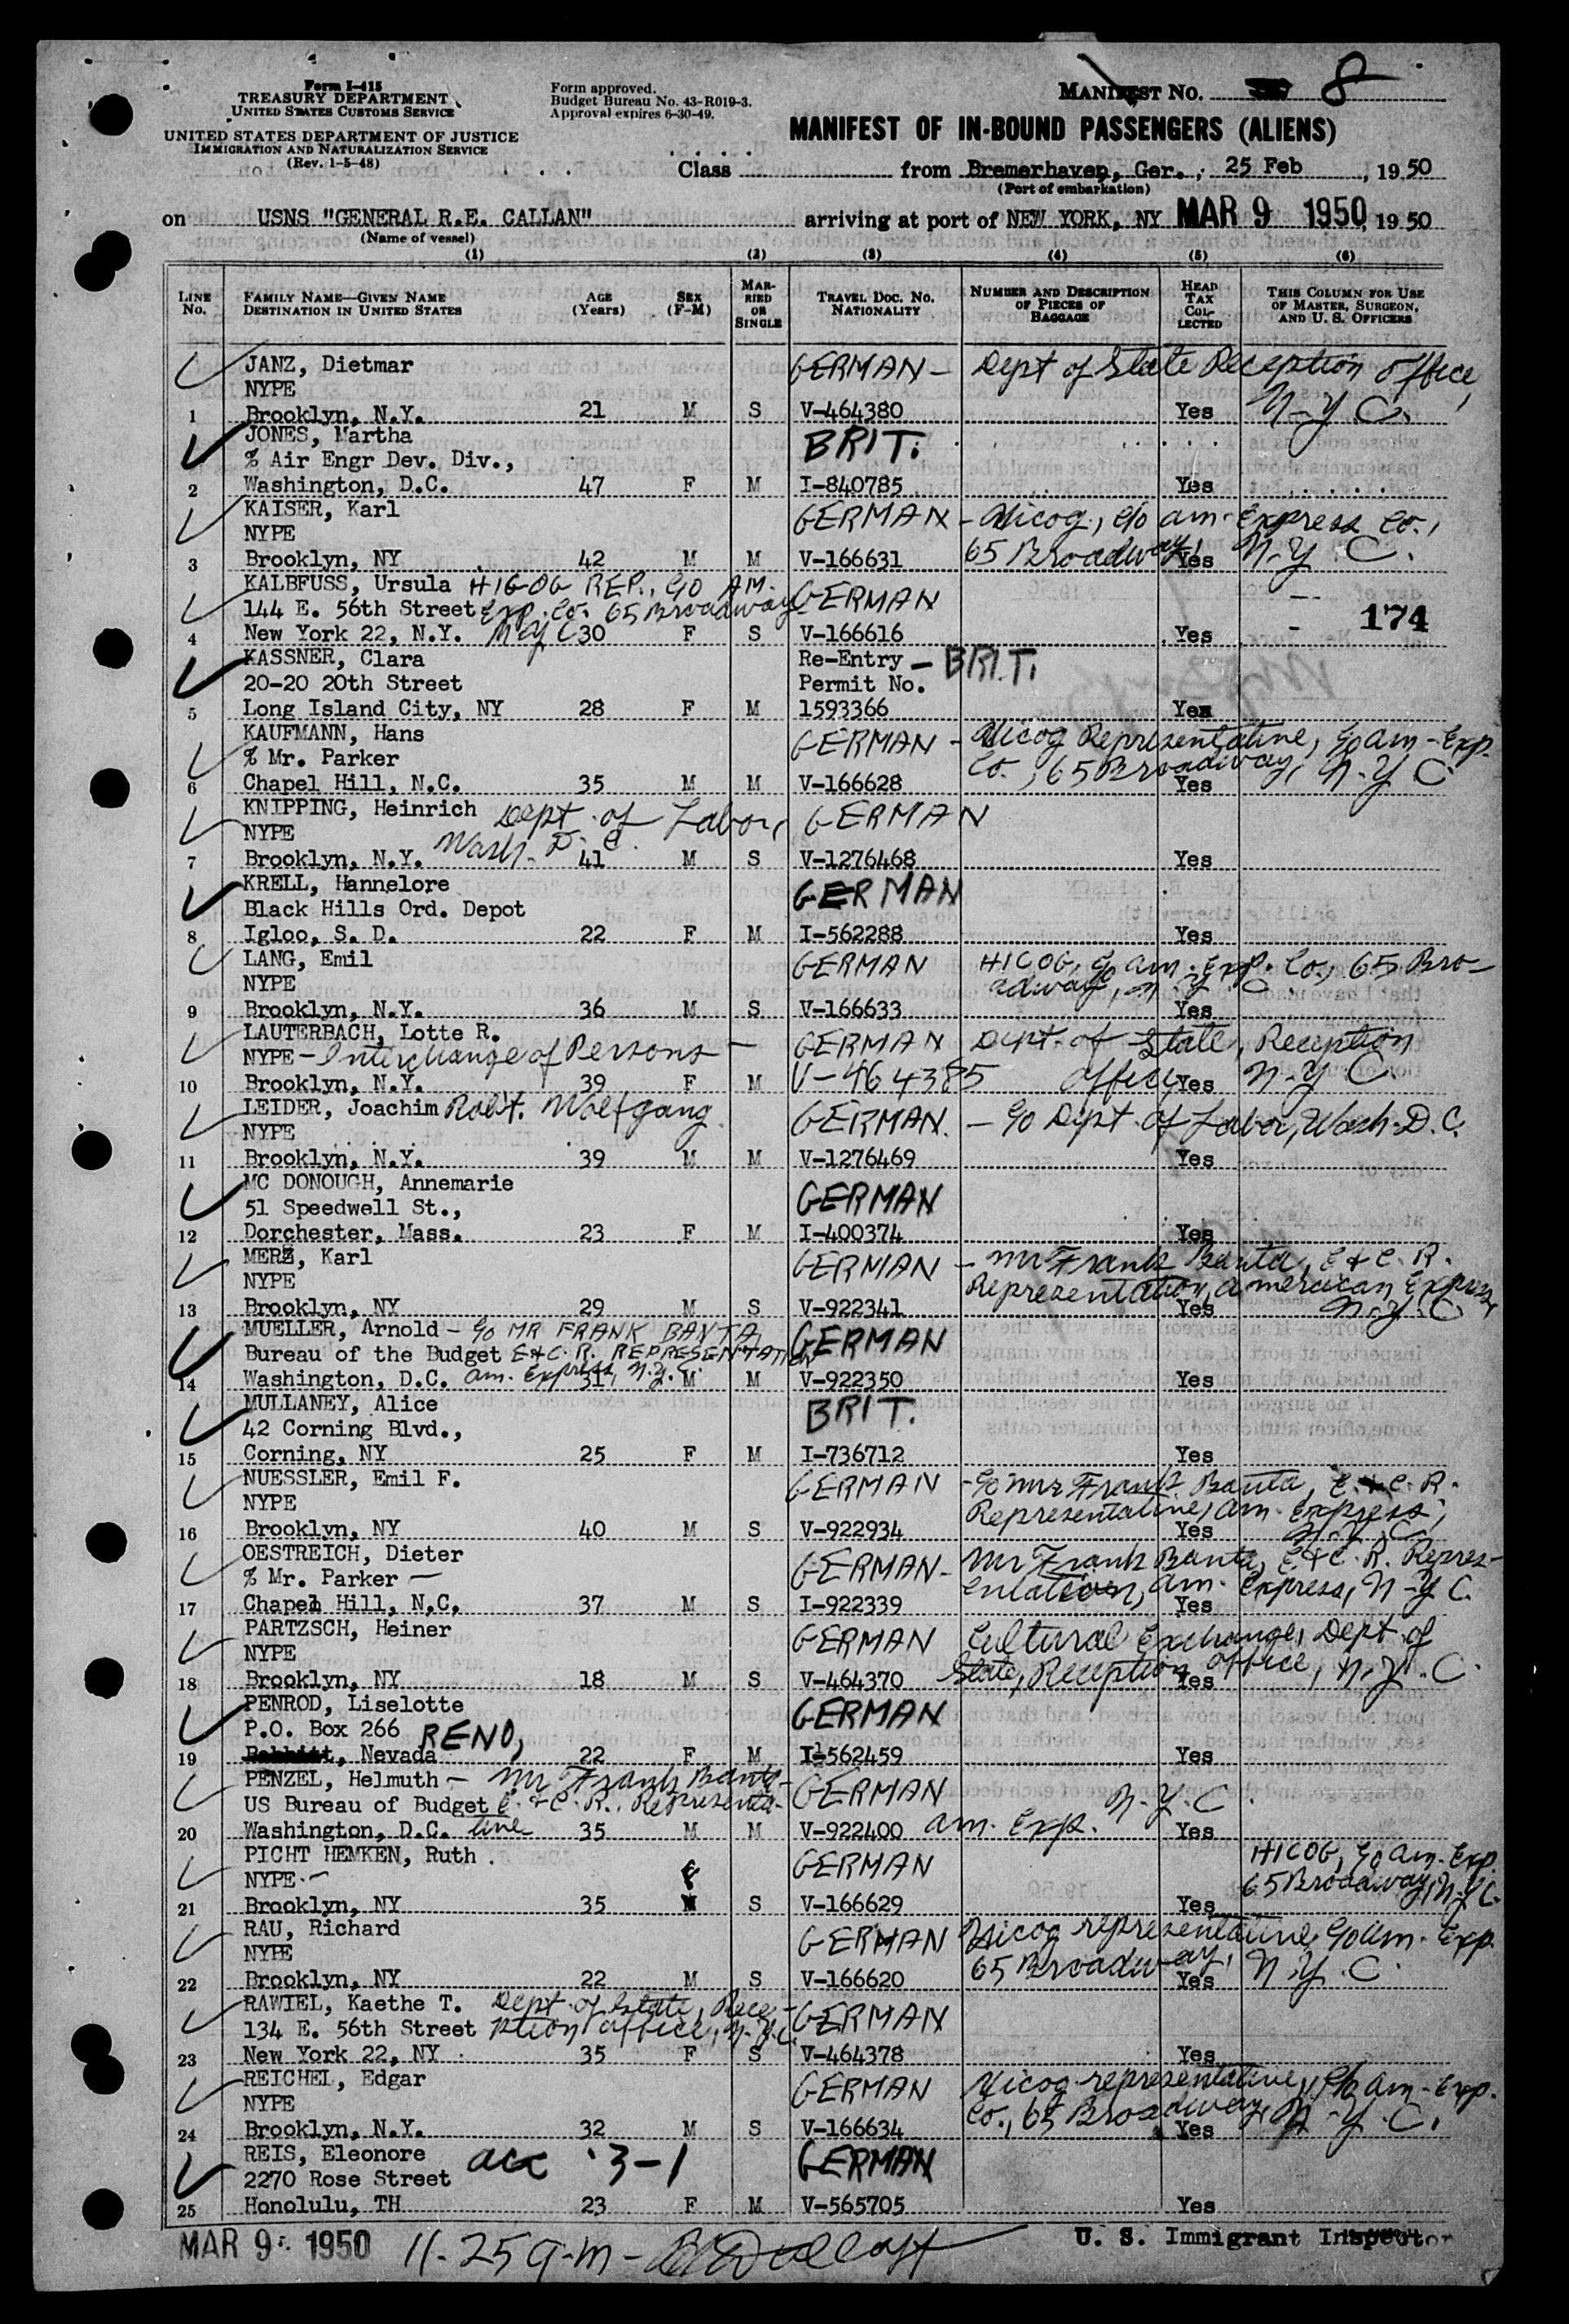 Form I-415
TREASURY DEPARTMENT
UNITED STATES CUSTOMS SERVICE
UNITED STATES DEPARTMENT OF JUSTICE
IMMIGRATION AND NATURALIZATION SERVICE
(Rev. 1-5-48)
Form approved.
Budget Bureau No. 43-R019-3.
Approval expires 6-30-49.
MANIFEST NO. 8
MANIFEST OF IN-BOUND PASSENGERS (ALIENS)
Class from Bremerhaven, Ger., 25 Feb, 1950
(Port of embarkation)
on USNS "GENERAL R.E. CALLAN" arriving at port of NEW YORK, NY MAR 9 1950, 1950
(Name of vessel)
(1) (2) (3) (4) (5) (6)
LINE NO. FAMILY NAME—GIVEN NAME DESTINATION IN UNITED STATES AGE (Years) SEX (F-M) MARRIED OR SINGLE TRAVEL DOC. NO. NATIONALITY NUMBER AND DESCRIPTION OF PIECES OF BAGGAGE HEAD TAX COLLECTED THIS COLUMN FOR USE OF MASTER, SURGEON, AND U. S. OFFICERS
JANZ, Dietmar GERMAN - Dept of State Reception Office,
NYPE N-Y C.
1 Brooklyn, N.Y. 21 M S V-464380 Yes
JONES, Martha BRIT.
% Air Engr Dev. Div.,
2 Washington, D.C. 47 F M I-840785 Yes
KAISER, Karl GERMAN - Hicog, c/o am. Express Co.,
NYPE 65 Broadway, N-Y C.
3 Brooklyn, NY 42 M M V-166631 Yes
KALBFUSS, Ursula HICOG REP., c/o AM.
144 E. 56th Street Exp. Co. 65 Broadway GERMAN
4 New York 22, N.Y. N.Y.C 30 F S V-166616 Yes - 174
KASSNER, Clara Re-Entry - BRIT.
20-20 20th Street Permit No.
5 Long Island City, NY 28 F M 1593366 Yes
KAUFMANN, Hans GERMAN - Hicog Representative, c/o am-Exp.
% Mr. Parker Co., 65 Broadway, N-Y C
6 Chapel Hill, N.C. 35 M M V-166628 Yes
KNIPPING, Heinrich Dept. of Labor, GERMAN
NYPE Wash. D. C.
7 Brooklyn, N.Y. 41 M S V-1276468 Yes
KRELL, Hannelore GERMAN
Black Hills Ord. Depot
8 Igloo, S. D. 22 F M I-562288 Yes
LANG, Emil GERMAN HICOG, c/o am. Exp. Co., 65 Bro-
NYPE adway, N.Y.C.
9 Brooklyn, N.Y. 36 M S V-166633 Yes
LAUTERBACH, Lotte R. GERMAN Dept. of State, Reception
NYPE - Interchange of Persons - office, N-Y C.
10 Brooklyn, N.Y. 39 F M V-464385 Yes
LEIDER, Joachim Rob't. Wolfgang GERMAN. - c/o Dept of Labor, Wash. D.C.
NYPE
11 Brooklyn, N.Y. 39 M M V-1276469 Yes
MC DONOUGH, Annemarie GERMAN
51 Speedwell St.,
12 Dorchester, Mass. 23 F M I-400374 Yes
MERZ, Karl GERMAN - Mr Frank Banta, E & C. R.
NYPE Representation, American Express,
13 Brooklyn, NY 29 M S V-922341 Yes N.Y.C
MUELLER, Arnold - c/o MR FRANK BANTA, GERMAN
Bureau of the Budget E&C.R. REPRESENTATION
14 Washington, D.C. am. Express, N.Y.C. 31 M M V-922350 Yes
MULLANEY, Alice BRIT.
42 Corning Blvd.,
15 Corning, NY 25 F M I-736712 Yes
NUESSLER, Emil F. GERMAN - c/o Mr Frank Banta, E. & C. R.
NYPE Representative, am. Express,
16 Brooklyn, NY 40 M S V-922934 Yes N.Y.C.
OESTREICH, Dieter GERMAN - Mr Frank Banta, E. & C. R. Repres-
% Mr. Parker - entation, am. Express, N-Y C.
17 Chapel Hill, N.C. 37 M S I-922339 Yes
PARTZSCH, Heiner GERMAN Cultural Exchange, Dept. of
NYPE State, Reception Office, N.Y.C.
18 Brooklyn, NY 18 M S V-464370 Yes
PENROD, Liselotte GERMAN
P.O. Box 266 RENO,
19 , Nevada 22 F M I-562459 Yes
PENZEL, Helmuth - Mr Frank Banta - GERMAN
US Bureau of Budget E. & C. R. Representa- N.Y.C.
20 Washington, D.C. tive 35 M M V-922400 am. Exp. Yes
PICHT HEMKEN, Ruth GERMAN HICOG, c/o am. Exp.
NYPE - F 65 Broadway, N.Y.C.
21 Brooklyn, NY 35 S V-166629 Yes
RAU, Richard GERMAN Hicog representative, c/o am. Exp.
NYPE 65 Broadway, N.Y.C.
22 Brooklyn, NY 22 M S V-166620 Yes
RAWIEL, Kaethe T. Dept. of State, Rece- GERMAN
134 E. 56th Street ption office, N.Y.C.
23 New York 22, NY 35 F S V-464378 Yes
REICHEL, Edgar GERMAN Hicog representative, c/o am-Exp.
NYPE Co., 65 Broadway, N-Y.C.
24 Brooklyn, N.Y. 32 M S V-166634 Yes
REIS, Eleonore acc 3-1 GERMAN
2270 Rose Street
25 Honolulu, TH 23 F M V-565705 Yes
MAR 9 1950 11.25 a-m - U. S. Immigrant Inspector